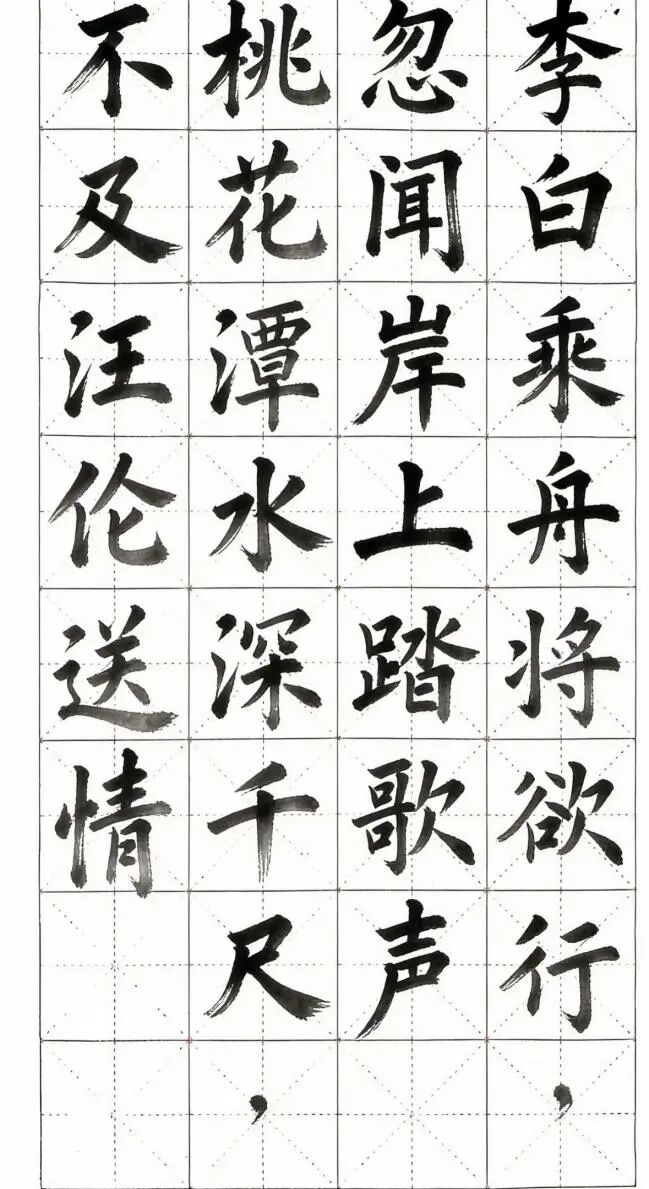 李白乘舟将欲行，
忽闻岸上踏歌声
桃花潭水深千尺，
不及汪伦送情